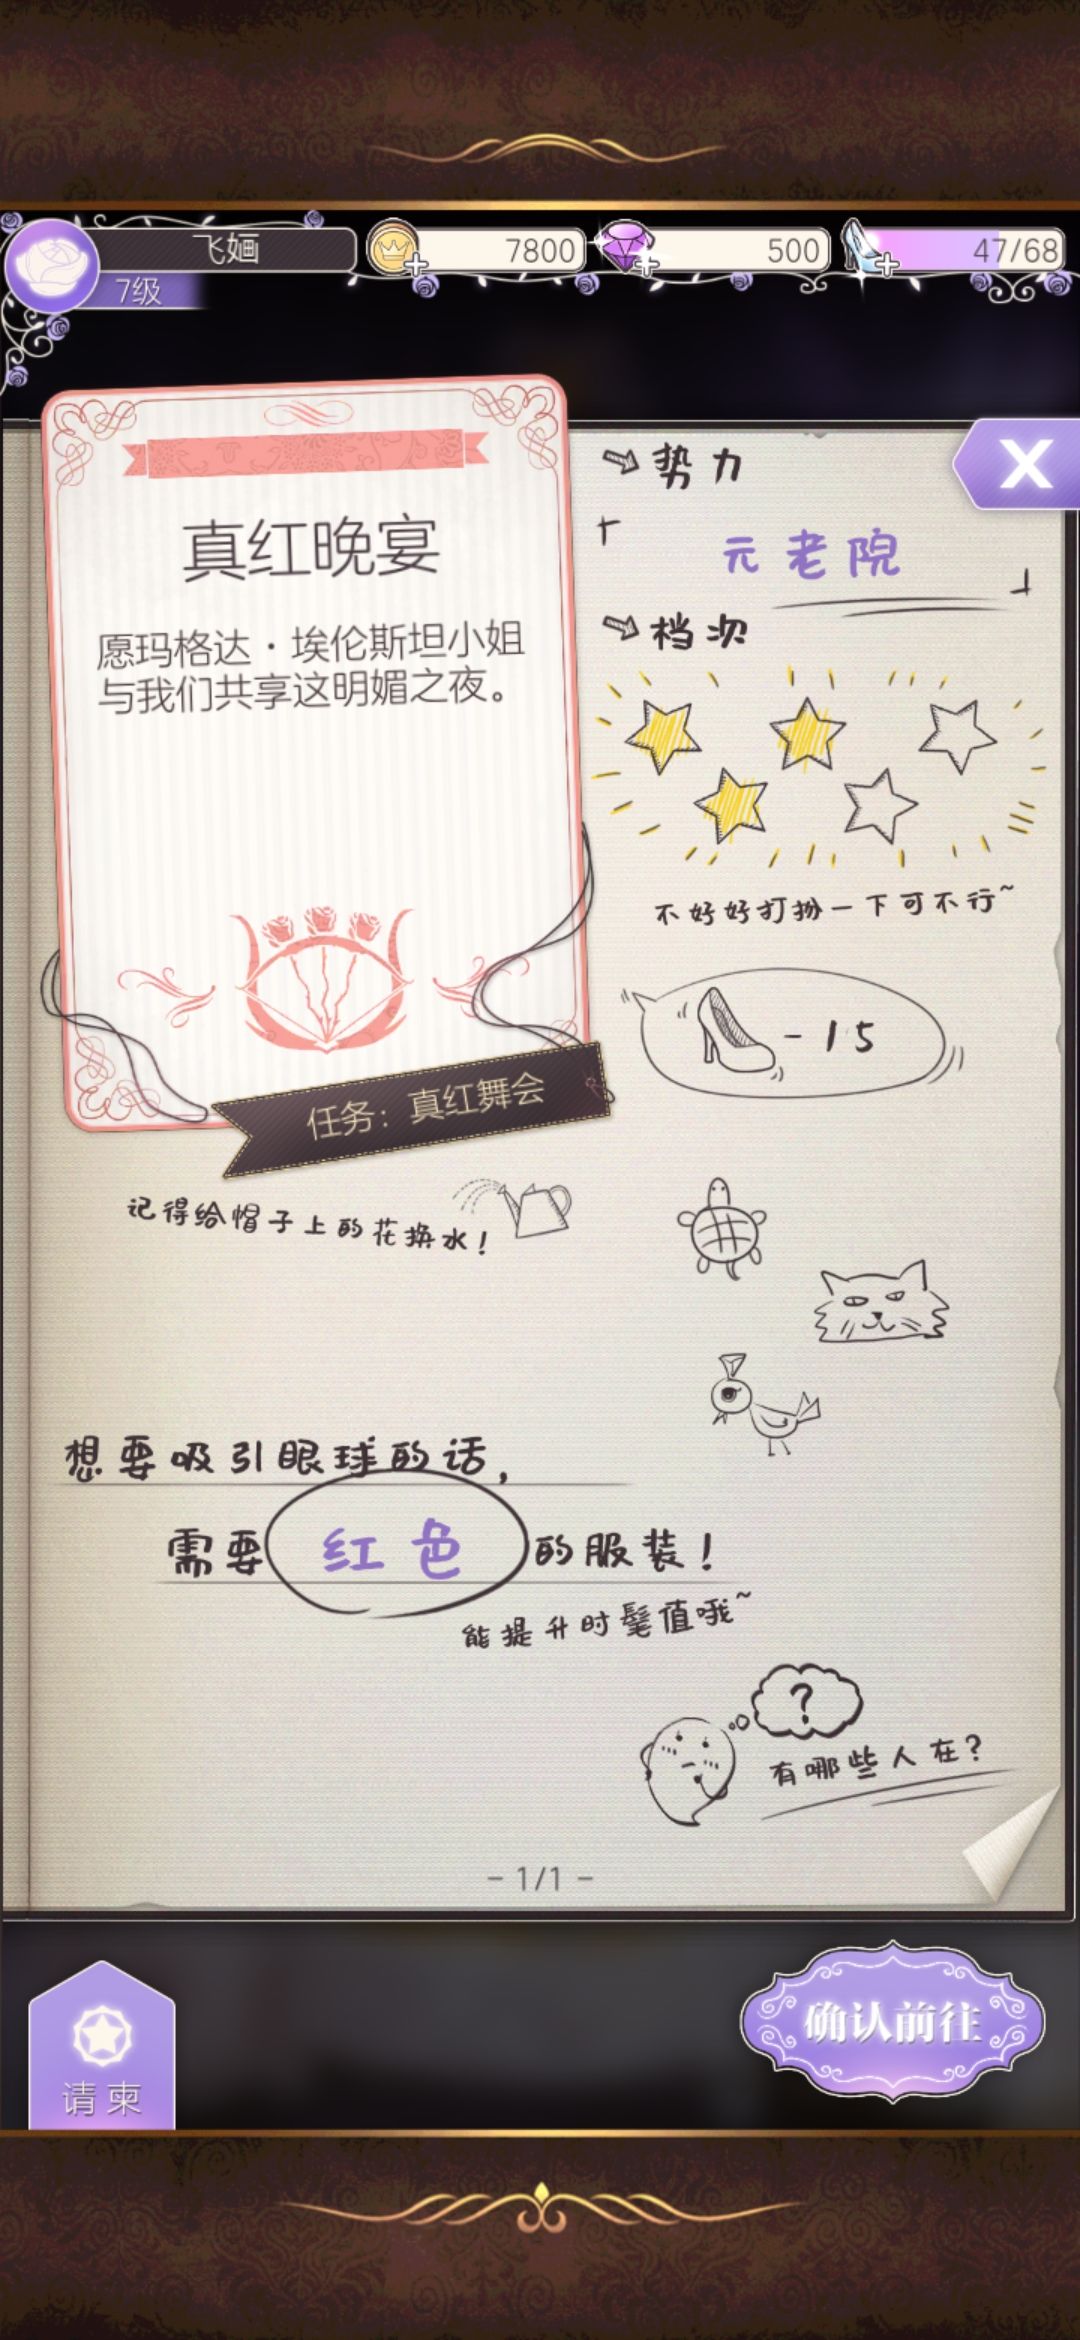 飞婳
7级
7800
500
47/68
真红晚宴
愿玛格达·埃伦斯坦小姐
与我们共享这明媚之夜。
任务：真红舞会
势力
元老院
档次
不好好打扮一下可不行~
-15
记得给帽子上的花换水！
想要吸引眼球的话，
需要红色的服装！
能提升时髦值哦~
?
有哪些人在?
- 1/1 -
请柬
确认前往
X